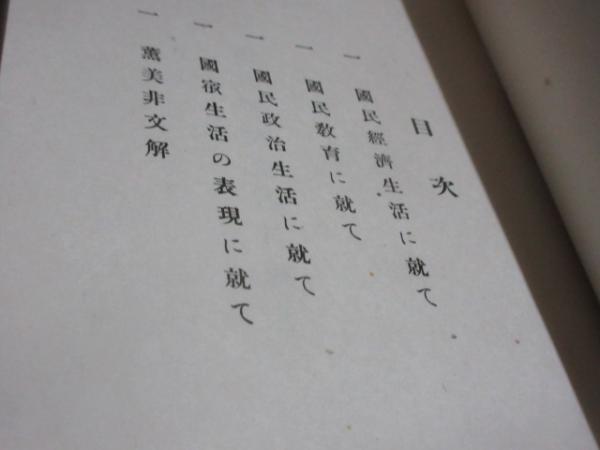 目次
一 國民經濟生活に就て
一 國民敎育に就て
一 國民政治生活に就て
一 國家生活の表現に就て
一 薰美非文解